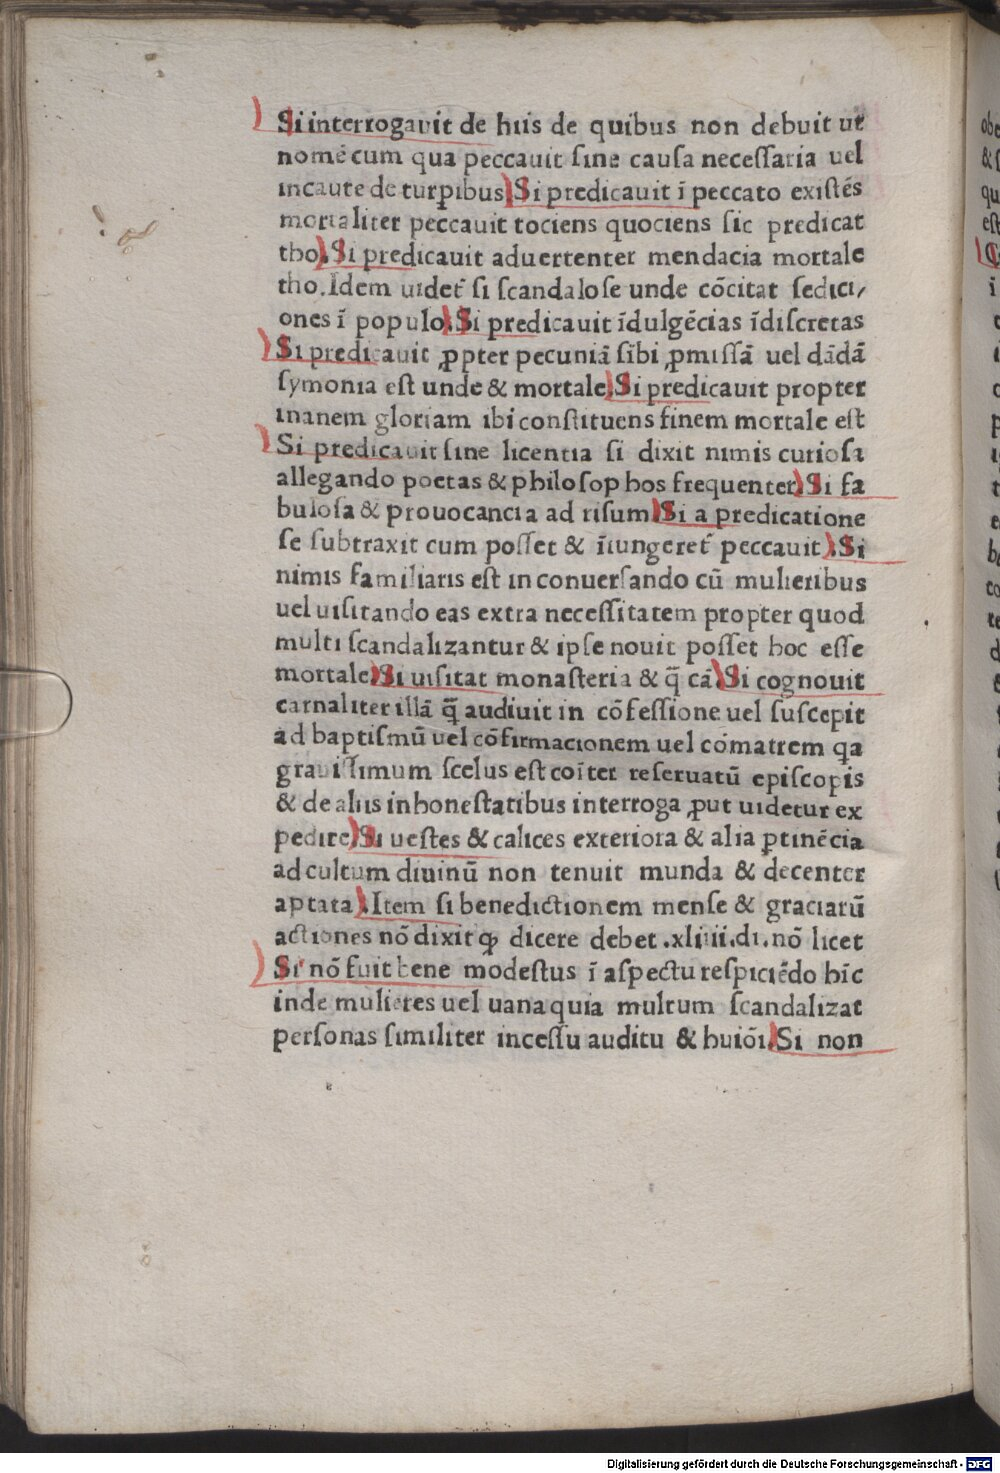 Si interrogauit de hiis de quibus non debuit ut
nomē cum qua peccauit ſine cauſa neceſſaria uel
incaute de turpibus. Si predicauit ī peccato exiſtēs
mortaliter peccauit tociens quociens ſic predicat
tho. Si predicauit aduertenter mendacia mortale
tho. Idem uidet̄ ſi ſcandaloſe unde cōcitat ſedici/
ones ī populo. Si predicauit īdulgēcias īdiſcretas
Si predicauit ꝓpter pecuniā ſibi ꝓmiſſā uel dādā
ſymonia eſt unde & mortale. Si predicauit propter
inanem gloriam ibi conſtituens finem mortale eſt
Si predicauit ſine licentia ſi dixit nimis curioſa
allegando poetas & philoſophos frequenter. Si fa
buloſa & prouocancia ad riſum. Si a predicatione
ſe ſubtraxit cum poſſet & īiungeret̄ peccauit. Si
nimis familiaris eſt in conuerſando cū mulieribus
uel uiſitando eas extra neceſſitatem propter quod
multi ſcandalizantur & ipſe nouit poſſet hoc eſſe
mortale. Si uiſitat monaſteria & q̄ cā. Si cognouit
carnaliter illā q̄ audiuit in cōfeſſione uel ſuſcepit
ad baptiſmū uel cōfirmacionem uel cōmatrem qa
grauiſſimum ſcelus eſt coīter reſeruatū epiſcopis
& de aliis inhoneſtatibus interroga ꝓut uidetur ex
pedire. Si ueſtes & calices exteriora & alia ꝑtinēcia
ad cultum diuinū non tenuit munda & decenter
aptata. Item ſi benedictionem menſe & graciarū
actiones nō dixit ꝙ dicere debet .xliiii.di. nō licet
Si nō fuit bene modeſtus ī aſpectu reſpiciēdo hīc
inde mulieres uel uana quia multum ſcandalizat
perſonas ſimiliter inceſſu auditu & huiōi. Si non
Digitalisierung gefördert durch die Deutsche Forschungsgemeinschaft - DFG